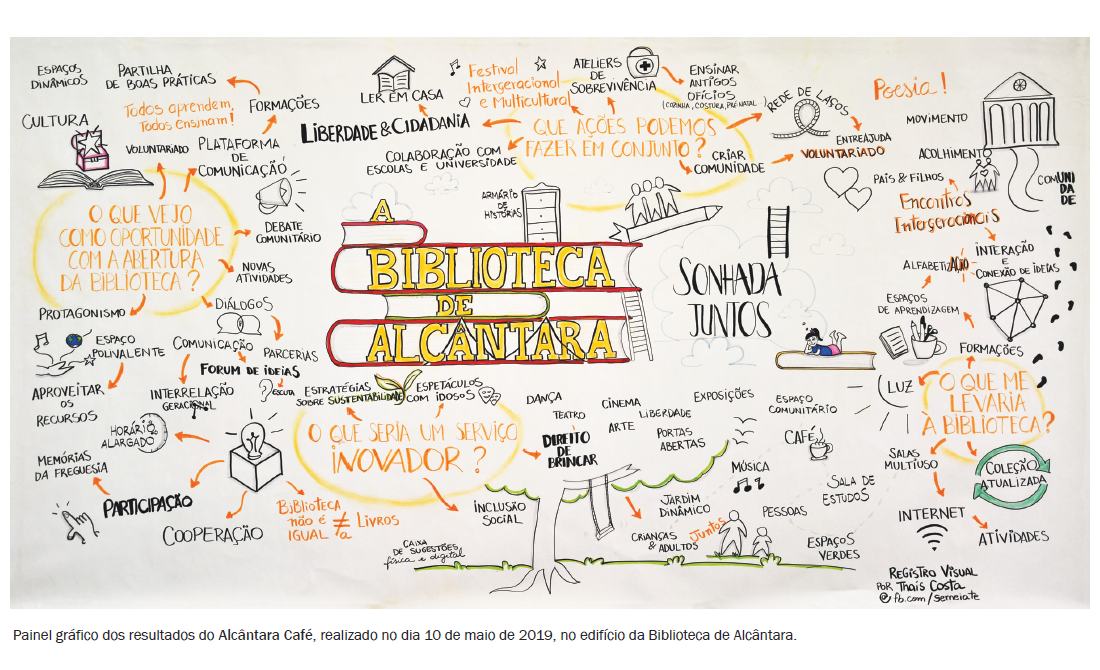 ESPAÇOS
DINÂMICOS
PARTILHA
DE BOAS PRÁTICAS
Todos aprendem,
Todos Ensinam!
FORMAÇÕES
CULTURA
VOLUNTARIADO
PLATAFORMA
DE
COMUNICAÇÃO
O QUE VEJO
COMO OPORTUNIDADE
COM A ABERTURA
DA BIBLIOTECA?
DEBATE
COMUNITÁRIO
NOVAS
ATIVIDADES
DIÁLOGOS
PARCERIAS
PROTAGONISMO
ESPAÇO
POLIVALENTE
COMUNICAÇÃO
FORUM DE IDEIAS
ESCUTA
APROVEITAR
OS
RECURSOS
INTERRELAÇÃO
GERACIONAL
HORÁRIO
ALARGADO
MEMÓRIAS
DA FREGUESIA
PARTICIPAÇÃO
COOPERAÇÃO
BIBLIOTECA
NÃO É
IGUAL
≠
a
LIVROS
LER EM CASA
LIBERDADE & CIDADANIA
COLABORAÇÃO COM
ESCOLAS E UNIVERSIDADE
Festival
Intergeracional
e Multicultural
ATELIERS
DE
SOBREVIVÊNCIA
ENSINAR
ANTIGOS
OFÍCIOS
(COZINHA, COSTURA, PRÉ-NATAL...)
QUE AÇÕES PODEMOS
FAZER EM CONJUNTO?
CRIAR
COMUNIDADE
REDE DE LAÇOS
ENTREAJUDA
VOLUNTARIADO
ARMÁRIO
DE
HISTÓRIAS
A
BIBLIOTECA
DE
ALCÂNTARA
SONHADA
JUNTOS
Poesia!
MOVIMENTO
ACOLHIMENTO
PAIS & FILHOS
COMUNI
DA
DE
Encontros
Intergeracionais
ALFABETIZAÇÃO
INTERAÇÃO
E
CONEXÃO DE IDEIAS
ESPAÇOS
DE APRENDIZAGEM
FORMAÇÕES
LUZ
O QUE ME
LEVARIA
À BIBLIOTECA?
SALAS
MULTIUSO
COLEÇÃO
ATUALIZADA
INTERNET
ATIVIDADES
ESTRATÉGIAS
SOBRE SUSTENTABILIDADE
ESPETÁCULOS
COM IDOSOS
O QUE SERIA UM SERVIÇO
INOVADOR?
DIREITO
DE BRINCAR
INCLUSÃO
SOCIAL
CAIXA
DE SUGESTÕES
física e digital
DANÇA
TEATRO
CINEMA
ARTE
LIBERDADE
PORTAS
ABERTAS
EXPOSIÇÕES
ESPAÇO
COMUNITÁRIO
CAFÉ
MÚSICA
SALA DE
ESTUDOS
JARDIM
DINÂMICO
PESSOAS
CRIANÇAS
& ADULTOS
Juntos
ESPAÇOS
VERDES
REGISTRO VISUAL
POR THAIS COSTA
fb.com/semeiate
Painel gráfico dos resultados do Alcântara Café, realizado no dia 10 de maio de 2019, no edifício da Biblioteca de Alcântara.